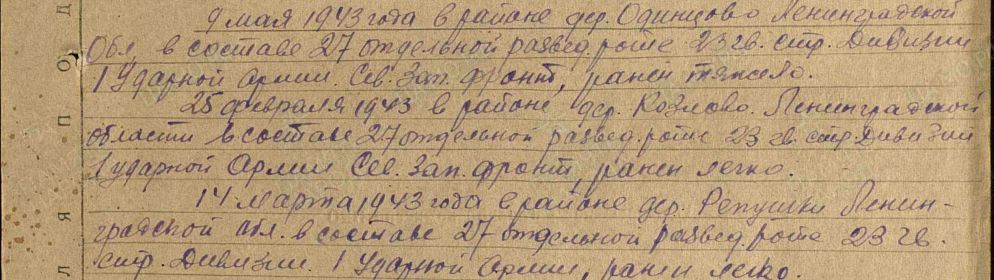 9 мая 1943 года в районе дер. Одинцово Ленинградской
Обл. в составе 27 отдельной развед. роте 23 гв. стр. Дивизии
1 Ударной Армии Сев. Зап. фронт, ранен тяжело.
25 февраля 1943 в районе дер. Козлово Ленинградской
области в составе 27 отдельной развед. роте 23 гв. стр. Дивизии
1 ударной Армии Сев. Зап. фронт, ранен легко.
14 марта 1943 года в районе дер. Репушки Ленин-
градской обл. в составе 27 отдельной развед. роте 23 гв.
стр. Дивизии 1 Ударной Армии, ранен легко.